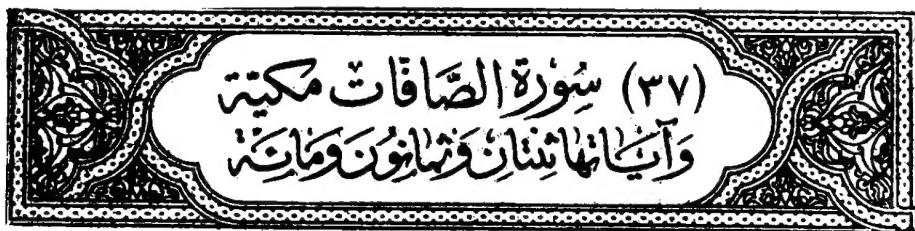 (٣٧) سُورَة الصَّافَّات مَكيّة
وَآيَاتهَا ثِنتَان وَثَمَانُونَ وَمَائَة